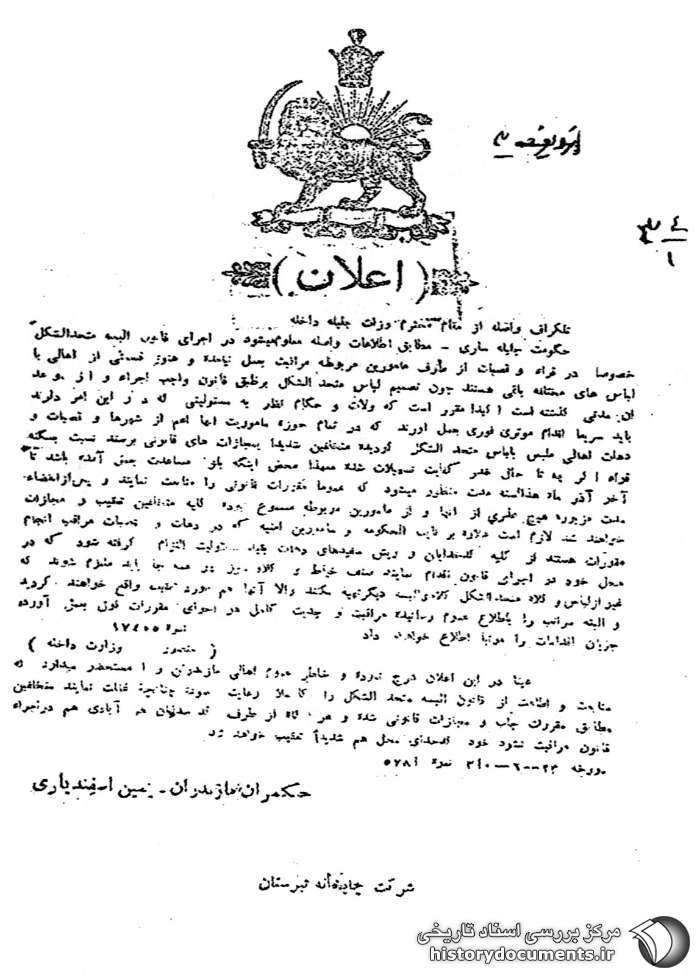 (اعلان)
تلگراف واصله از مقام محترم وزارت جلیله داخله
حکومت جلیله ساری - مطابق اطلاعات واصله معلوم میشود در اجرای قانون البسه متحدالشکل
خصوصا در قراء و قصبات از طرف مامورین مربوطه مراقبت بعمل نیامده و هنوز قسمتی از اهالی با
لباس های مختلفه باقی هستند چون تصمیم لباس متحد الشکل برطبق قانون واجب اجراء و از موعد
آن مدتی گذشته است اکیدا مقرر است که ولات و حکام نظر به مسئولیتی که در این امر دارند
باید سریعا اقدام موثری فوری بعمل آورند که در تمام حوزه ماموریت آنها اعم از شهرها و قصبات و
دهات اهالی ملبس بلباس متحد الشکل گردیده متخلفین شدیدا بمجازات های قانونی برسند نسبت بسکنه
قراء اگر چه تا حال قدر کفایت تسهیلات شده معهذا محض اینکه باز مساعدت بعمل آمده باشد تا
آخر آذر ماه هذالسنه مدت منظور میشود که عموما مقررات قانونی را متابعت نمایند و پس از انقضاء
مدت مزبوره هیچ عذری از آنها و از مامورین مربوطه مسموع نبوده کلیه متخلفین تعقیب و مجازات
خواهند شد لازم است علاوه بر نایب الحکومه و مامورین امنیه که در دهات و قصبات مراقب انجام
مقررات هستند از کلیه کدخدایان و ریش سفیدهای دهات باید مسئولیت التزام گرفته شود که در
محل خود در اجرای قانون اقدام نمایند صنف خیاط و کلاه دوز در همه جا باید ملتزم شوند که
غیر از لباس و کلاه متحدالشکل کلاه و البسه دیگر تهیه نکنند والا آنها هم مورد تعقیب واقع خواهند گردید
و البته مراتب را باطلاع عموم رسانیده مراقبت و جدیت کامل در اجرای مقررات فوق بعمل آورده
جریان اقدامات را مرتبا اطلاع خواهند داد
نمره ۱۷۴۰۵
(منصور وزارت داخله)
عینا در این اعلان درج نموده و خاطر عموم اهالی مازندران را مستحضر میدارد که
متابعت و اطاعت از قانون البسه متحد الشکل را کاملا رعایت نموده چنانچه غفلت نمایند متخلفین
مطابق مقررات جلب و مجازات قانونی شده و هر گاه از طرف کدخدایان هر آبادی هم در اجراء
قانون مراقبت نشود خود کدخدای محل هم شدیداً تعقیب خواهند شد
مورخه نمره ۵۷۸۱
حکمران مازندران - یمین اسفندیاری
شرکت چاپخانه طبرستان
مرکز بررسی اسناد تاریخی
historydocuments.ir